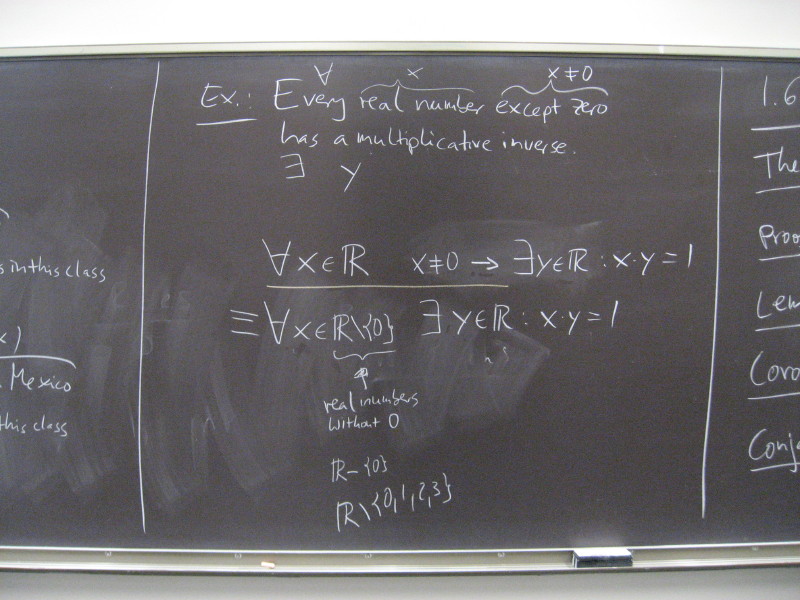 s in this class
x)
Mexico
this class
∀ x x≠0
Ex.: Every real number except zero
has a multiplicative inverse.
∃ y
∀x∈ℝ x≠0 → ∃y∈ℝ : x·y=1
≡∀x∈ℝ\{0} ∃y∈ℝ : x·y=1
real numbers
without 0
ℝ-{0}
ℝ\{0,1,2,3}
1.6
The
Proo
Lem
Coro
Conje